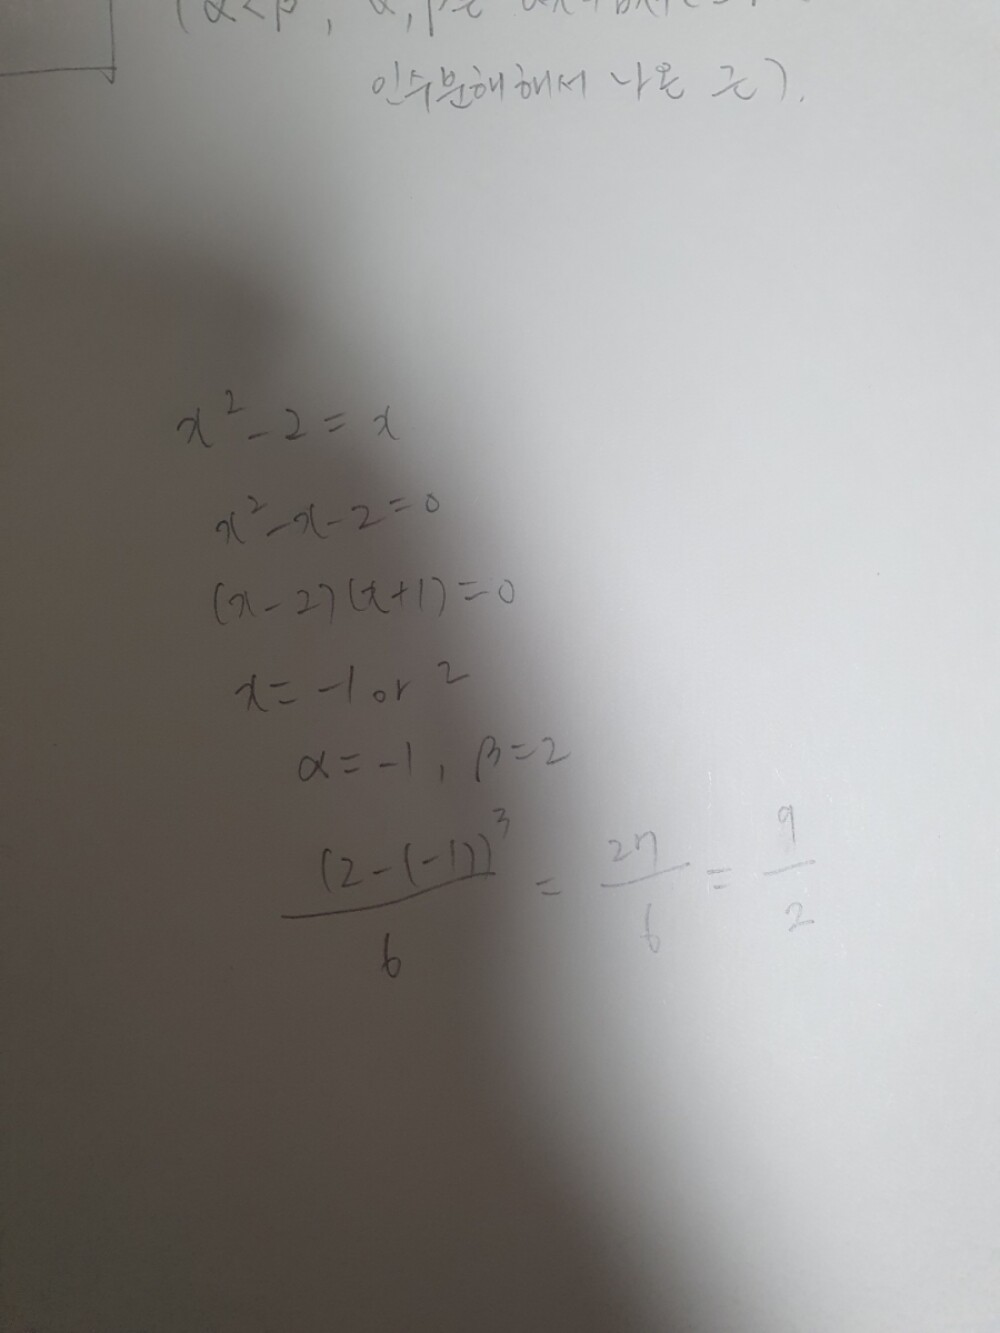 (α<β, α,β는
인수분해해서 나온 근).
x² - 2 = x
x² - x - 2 = 0
(x - 2)(x + 1) = 0
x = -1 or 2
α = -1, β = 2
(2-(-1))³/6 = 27/6 = 9/2